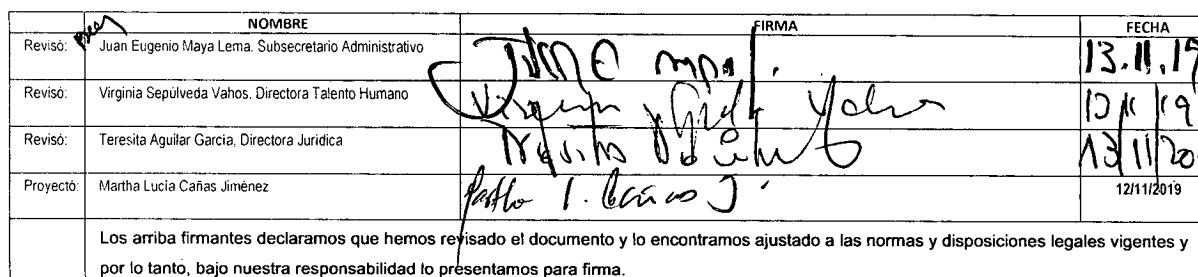 NOMBRE FIRMA FECHA
Revisó: Juan Eugenio Maya Lema. Subsecretario Administrativo 13.11.19
Revisó: Virginia Sepúlveda Vahos. Directora Talento Humano
Revisó: Teresita Aguilar García, Directora Jurídica 13/11/20
Proyectó: Martha Lucía Cañas Jiménez 12/11/2019
Los arriba firmantes declaramos que hemos revisado el documento y lo encontramos ajustado a las normas y disposiciones legales vigentes y
por lo tanto, bajo nuestra responsabilidad lo presentamos para firma.